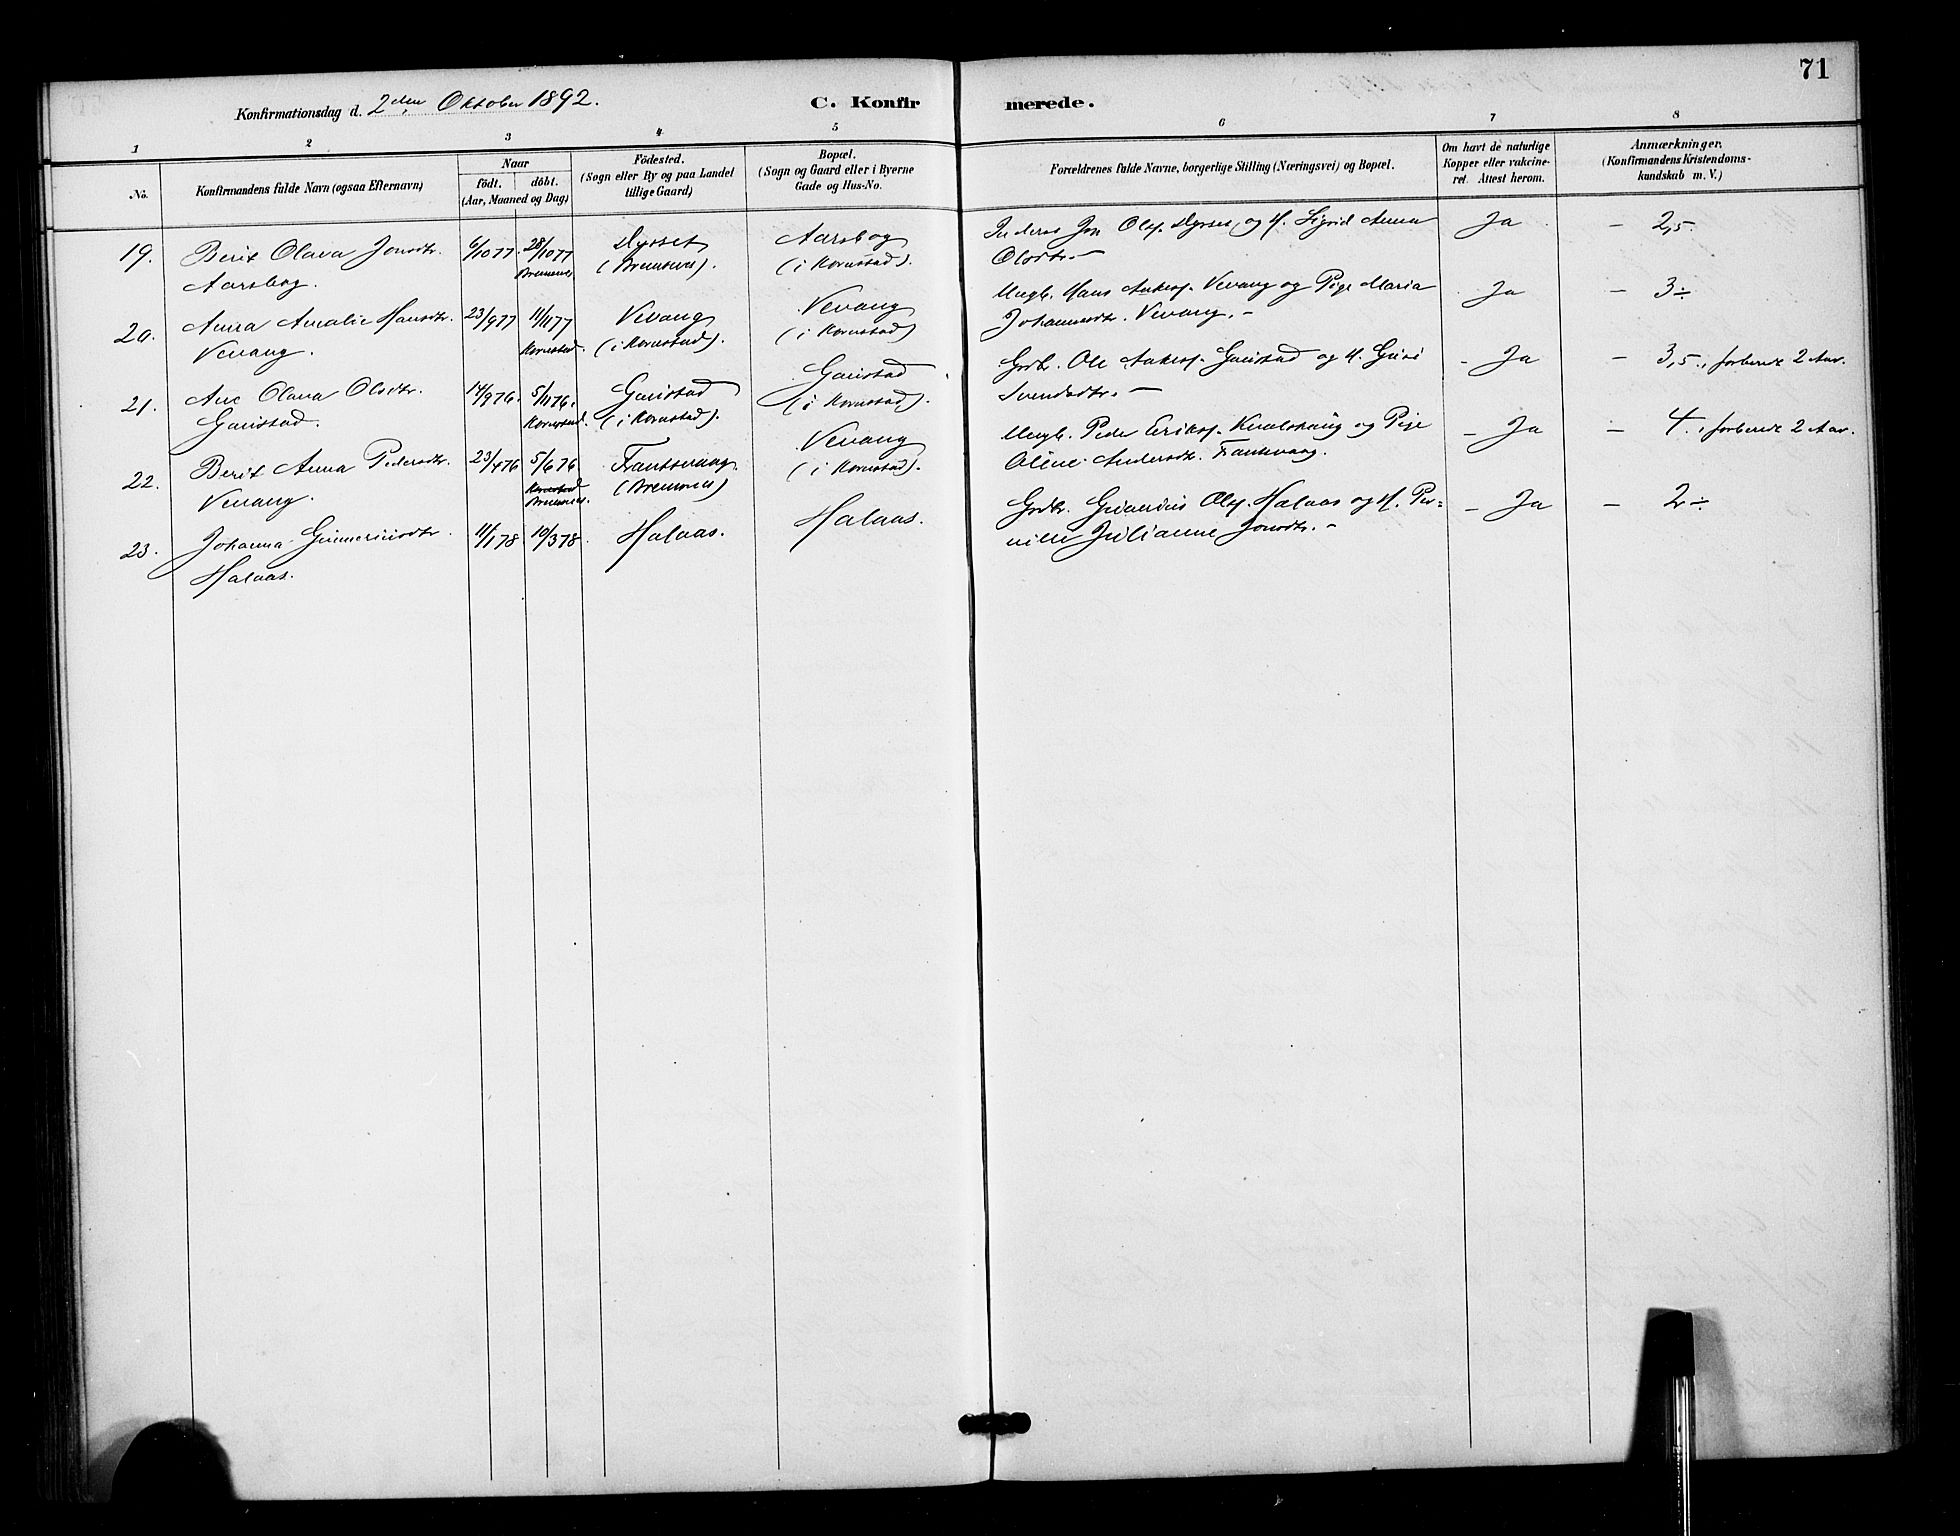 71
Konfirmationsdag d. 2den Oktober 1892.
C. Konfirmerede.
1 2 3 4 5 6 7 8
No.
Konfirmandens fulde Navn (ogsaa Efternavn)
Naar
födt. döbt.
(Aar, Maaned og Dag)
Födested.
(Sogn eller By og paa Landet
tillige Gaard)
Bopæl.
(Sogn og Gaard eller i Byerne
Gade og Hus-No.
Forældrenes fulde Navne, borgerlige Stilling (Næringsvei) og Bopæl.
Om havt de naturlige
Kopper eller vakcine-
ret. Attest herom.
Anmærkninger.
(Konfirmandens Kristendoms-
kundskab m. V.)
19. Berit Olava Jonsdtr. 6/10 77. 28/10 77 Dysset Aarsbog Inders Jon Ols. Dysset og H. Sigrid Anna Ja - 2,5.
Aarsbog. Bremsnes (Bremsnes). (i Kornstad). Olsdtr. —
20. Anna Amalie Hansdtr. 23/9 77 11/11 77 Vevang Vevang Ungk. Hans Ankers. Vevang og Pige Maria Ja - 3 ÷
Vevang. Kornstad. (i Kornstad). (i Kornstad) Johannesdtr. Vevang. -
21. Ane Olava Olsdtr. 14/9 76. 5/11 76. Gaustad Gaustad Grdbr. Ole Ankers. Gaustad og H. Guri - Ja - 3,5., forberedt 2 Aar.
Gaustad. Kornstad. (i Kornstad). (i Kornstad). Svendsdtr. —
22. Berit Anna Pedersdtr. 23/4 76 5/6 76 Frantsvaag Vevang Ungk. Peder Eriks. Kvalshaug og Pige - Ja - 4., forberedt 2 Aar.
Vevang. Kornstad Bremsnes. (Bremsnes) (i Kornstad). Oline Andersdtr. Frantsvaag.
23. Johanna Gunneriusdtr. 11/1 78 10/3 78. Halaas. Halaas. Grdbr. Gunerius Ols. Halaas og H. Per= - Ja - 2 ÷
Halaas. nille Julianne Jonsdtr. -